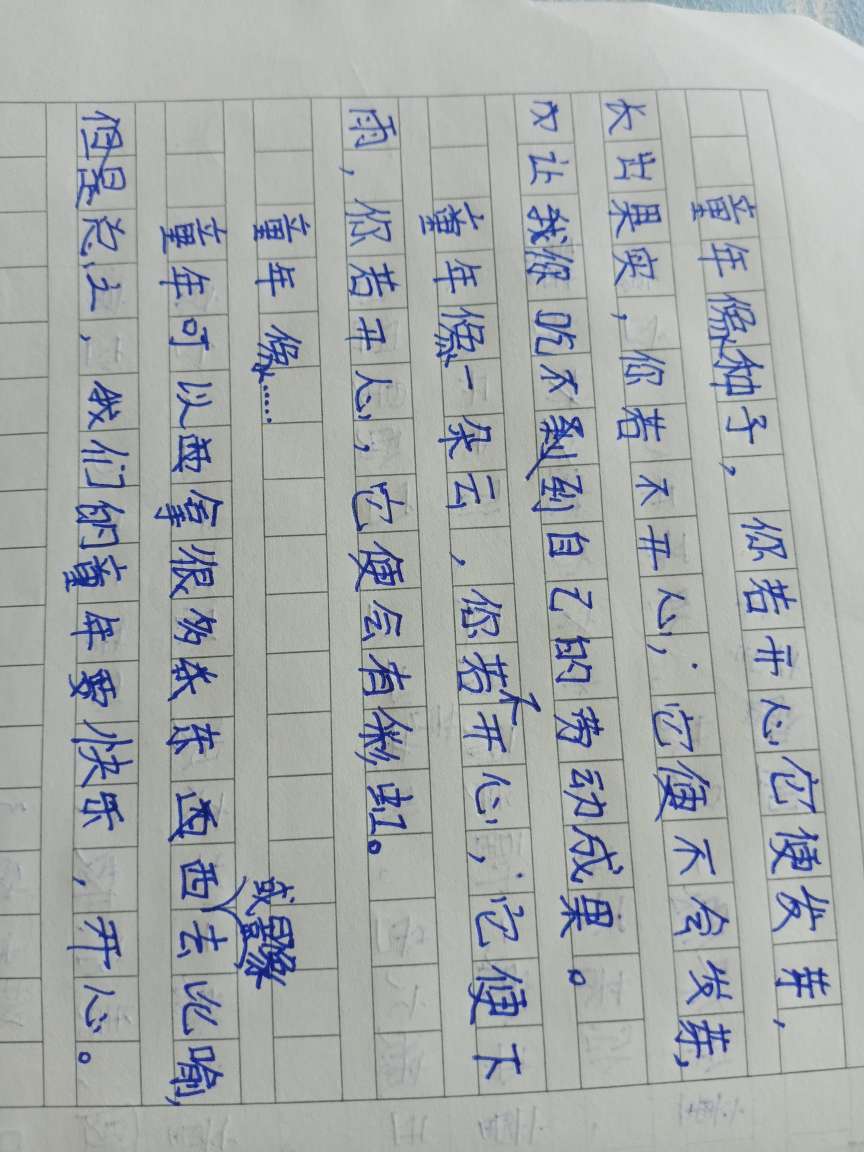 童年像种子，你若开心它便发芽，
长出果实，你若不开心，它便不会发芽，
让我你吃不到到自己的劳动成果。
童年像一朵云，你若不开心，它便下
雨，你若开心，它便会有彩虹。
童年像……
童年可以拿很多东西去比喻，
或
但是总之，我们的童年要快乐，开心。